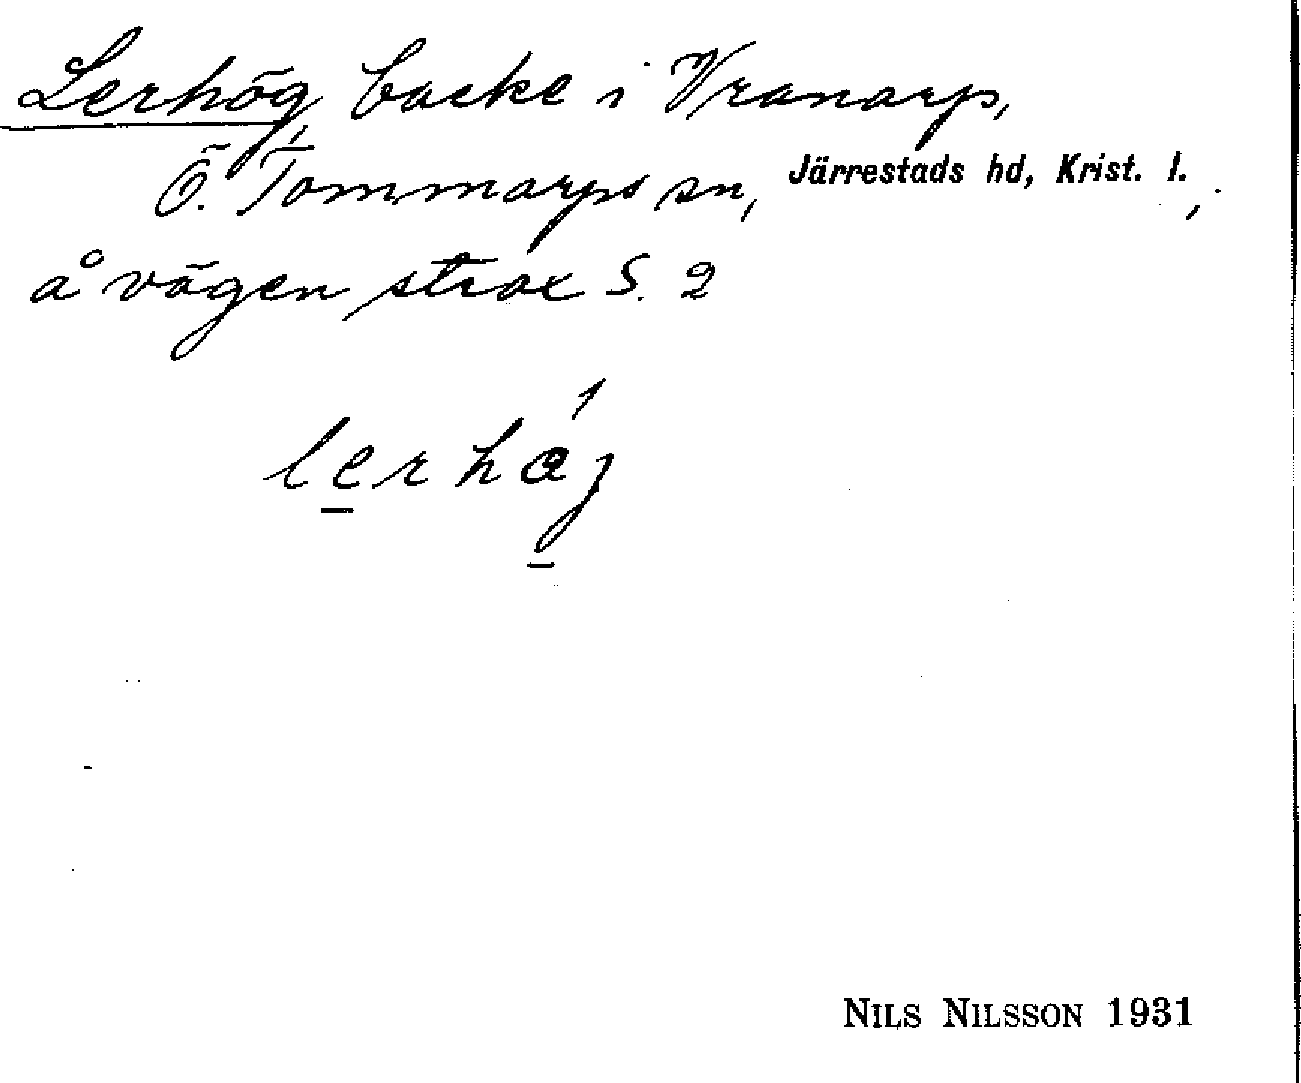 Lerhög backe i Vranarp,
Ö. Tommarps sn, Järrestads hd, Krist. l.,
å vägen strax S. 2
lerhøj
NILS NILSSON 1931